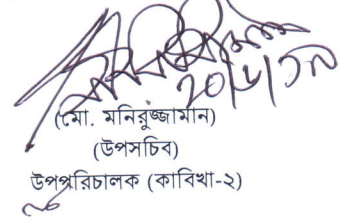 ২০/৬/১৯
(মো. মনিরুজ্জামান)
(উপসচিব)
উপপরিচালক (কাবিখা-২)